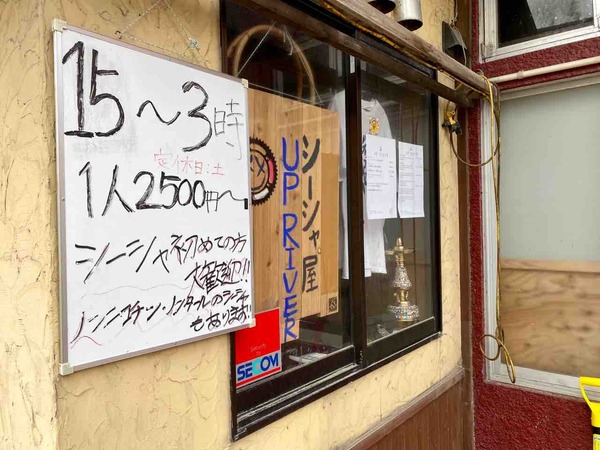 15〜3時
定休日:土
1人2500円〜
シーシャ初めての方
大歓迎!!
ノンニコチン・ノンタールのシーシャ
もあります!!
シーシャ屋
UP RIVER
SECOM